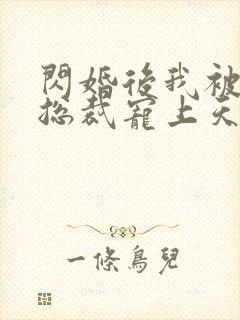 閃婚後我被
總裁寵上天
一條鳥兒